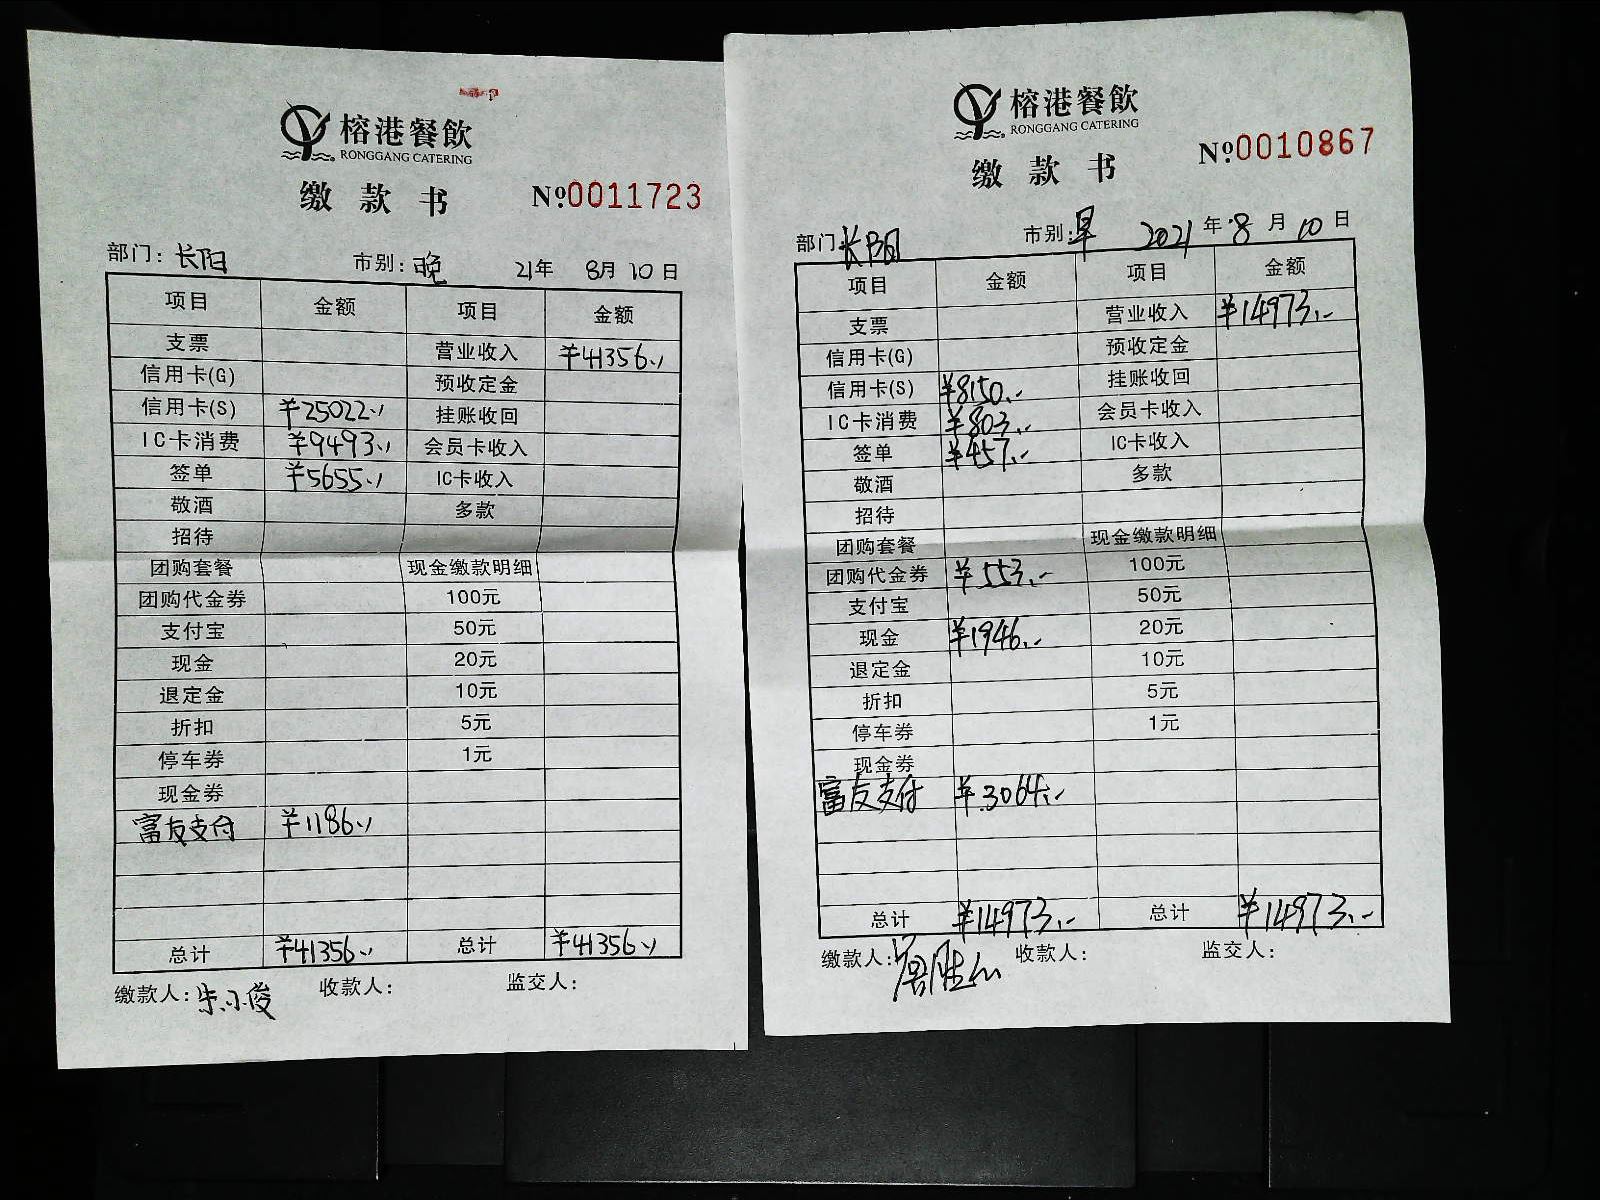 榕港餐飲
RONGGANG CATERING
缴款书 №0011723
部门：长阳 市别：晚 21年 8月10日
项目 金额 项目 金额
支票 营业收入 ¥41356.
信用卡(G) 预收定金
信用卡(S) ¥25022. 挂账收回
IC卡消费 ¥9493. 会员卡收入
签单 ¥5655. IC卡收入
敬酒 多款
招待
团购套餐 现金缴款明细
团购代金券 100元
支付宝 50元
现金 20元
退定金 10元
折扣 5元
停车券 1元
现金券
富友支付 ¥1186.
总计 ¥41356. 总计 ¥41356.
缴款人：朱小俊 收款人： 监交人：
榕港餐飲
RONGGANG CATERING
缴款书 №0010867
部门：长阳 市别：早 2021年8月10日
项目 金额 项目 金额
支票 营业收入 ¥14973.-
信用卡(G) 预收定金
信用卡(S) ¥8150.- 挂账收回
IC卡消费 ¥803.- 会员卡收入
签单 ¥457.- IC卡收入
敬酒 多款
招待
团购套餐 现金缴款明细
团购代金券 ¥553.- 100元
支付宝 50元
现金 ¥1946.- 20元
退定金 10元
折扣 5元
停车券 1元
现金券
富友支付 ¥3064.-
总计 ¥14973.- 总计 ¥14973.-
缴款人： 收款人： 监交人：